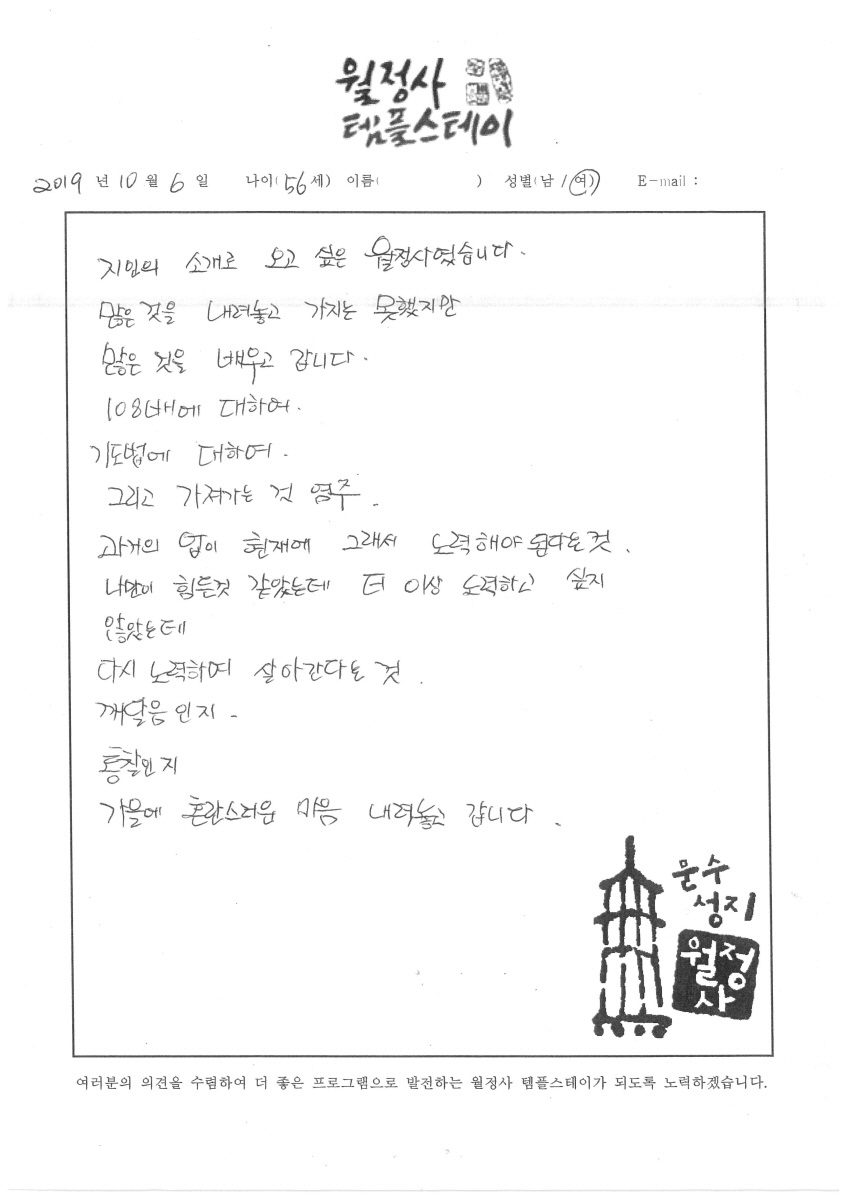 월정사
템플스테이
2019 년 10 월 6 일 나이( 56 세) 이름( ) 성별(남 / 여) E-mail :
지인의 소개로 오고 싶은 월정사였습니다.
많은 것을 내려놓고 가지는 못했지만
많은 것을 배우고 갑니다.
108배에 대하여.
기도법에 대하여.
그리고 가져가는 것 염주.
과거의 업이 현재에 그래서 노력해야 된다는것.
나만이 힘든것 같았는데 더 이상 노력하고 싶지
않았는데
다시 노력하며 살아간다는 것.
깨달음인지.
통찰인지
가을에 혼란스러운 마음 내려놓고 갑니다.
문수
성지
월정
사
여러분의 의견을 수렴하여 더 좋은 프로그램으로 발전하는 월정사 템플스테이가 되도록 노력하겠습니다.